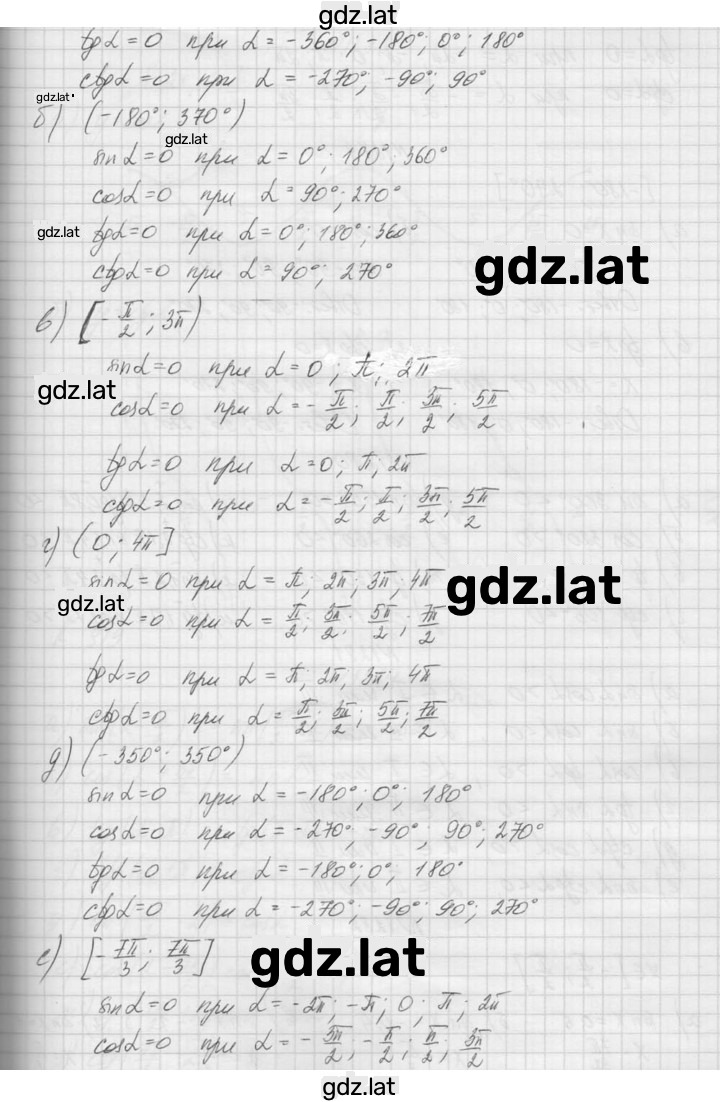 gdz.lat
tgα=0 при α = -360°; -180°; 0°; 180°
ctgα=0 при α = -270°; -90°; 90°
gdz.lat
б) (-180°; 370°)
gdz.lat
sinα=0 при α=0°; 180°; 360°
cosα=0 при α=90°; 270°
gdz.lat
tgα=0 при α=0°; 180°; 360°
ctgα=0 при α=90°; 270°
gdz.lat
в) [-π/2; 3π)
sinα=0 при α=0; π; 2π
gdz.lat
cosα=0 при α=-π/2; π/2; 3π/2; 5π/2
tgα=0 при α=0; π; 2π
ctgα=0 при α=-π/2; π/2; 3π/2; 5π/2
г) (0; 4π]
sinα=0 при α=π; 2π; 3π; 4π
gdz.lat
gdz.lat
cosα=0 при α=π/2; 3π/2; 5π/2; 7π/2
tgα=0 при α=π; 2π, 3π; 4π
ctgα=0 при α=π/2; 3π/2; 5π/2; 7π/2
д) (-350°; 350°)
sinα=0 при α=-180°; 0°; 180°
cosα=0 при α=-270°; -90°; 90°; 270°
tgα=0 при α=-180°; 0°, 180°
ctgα=0 при α=-270°; -90°; 90°; 270°
е) [-7π/3; 7π/3]
gdz.lat
sinα=0 при α=-2π; -π; 0; π; 2π
cosα=0 при α=-3π/2; -π/2; π/2; 3π/2
gdz.lat